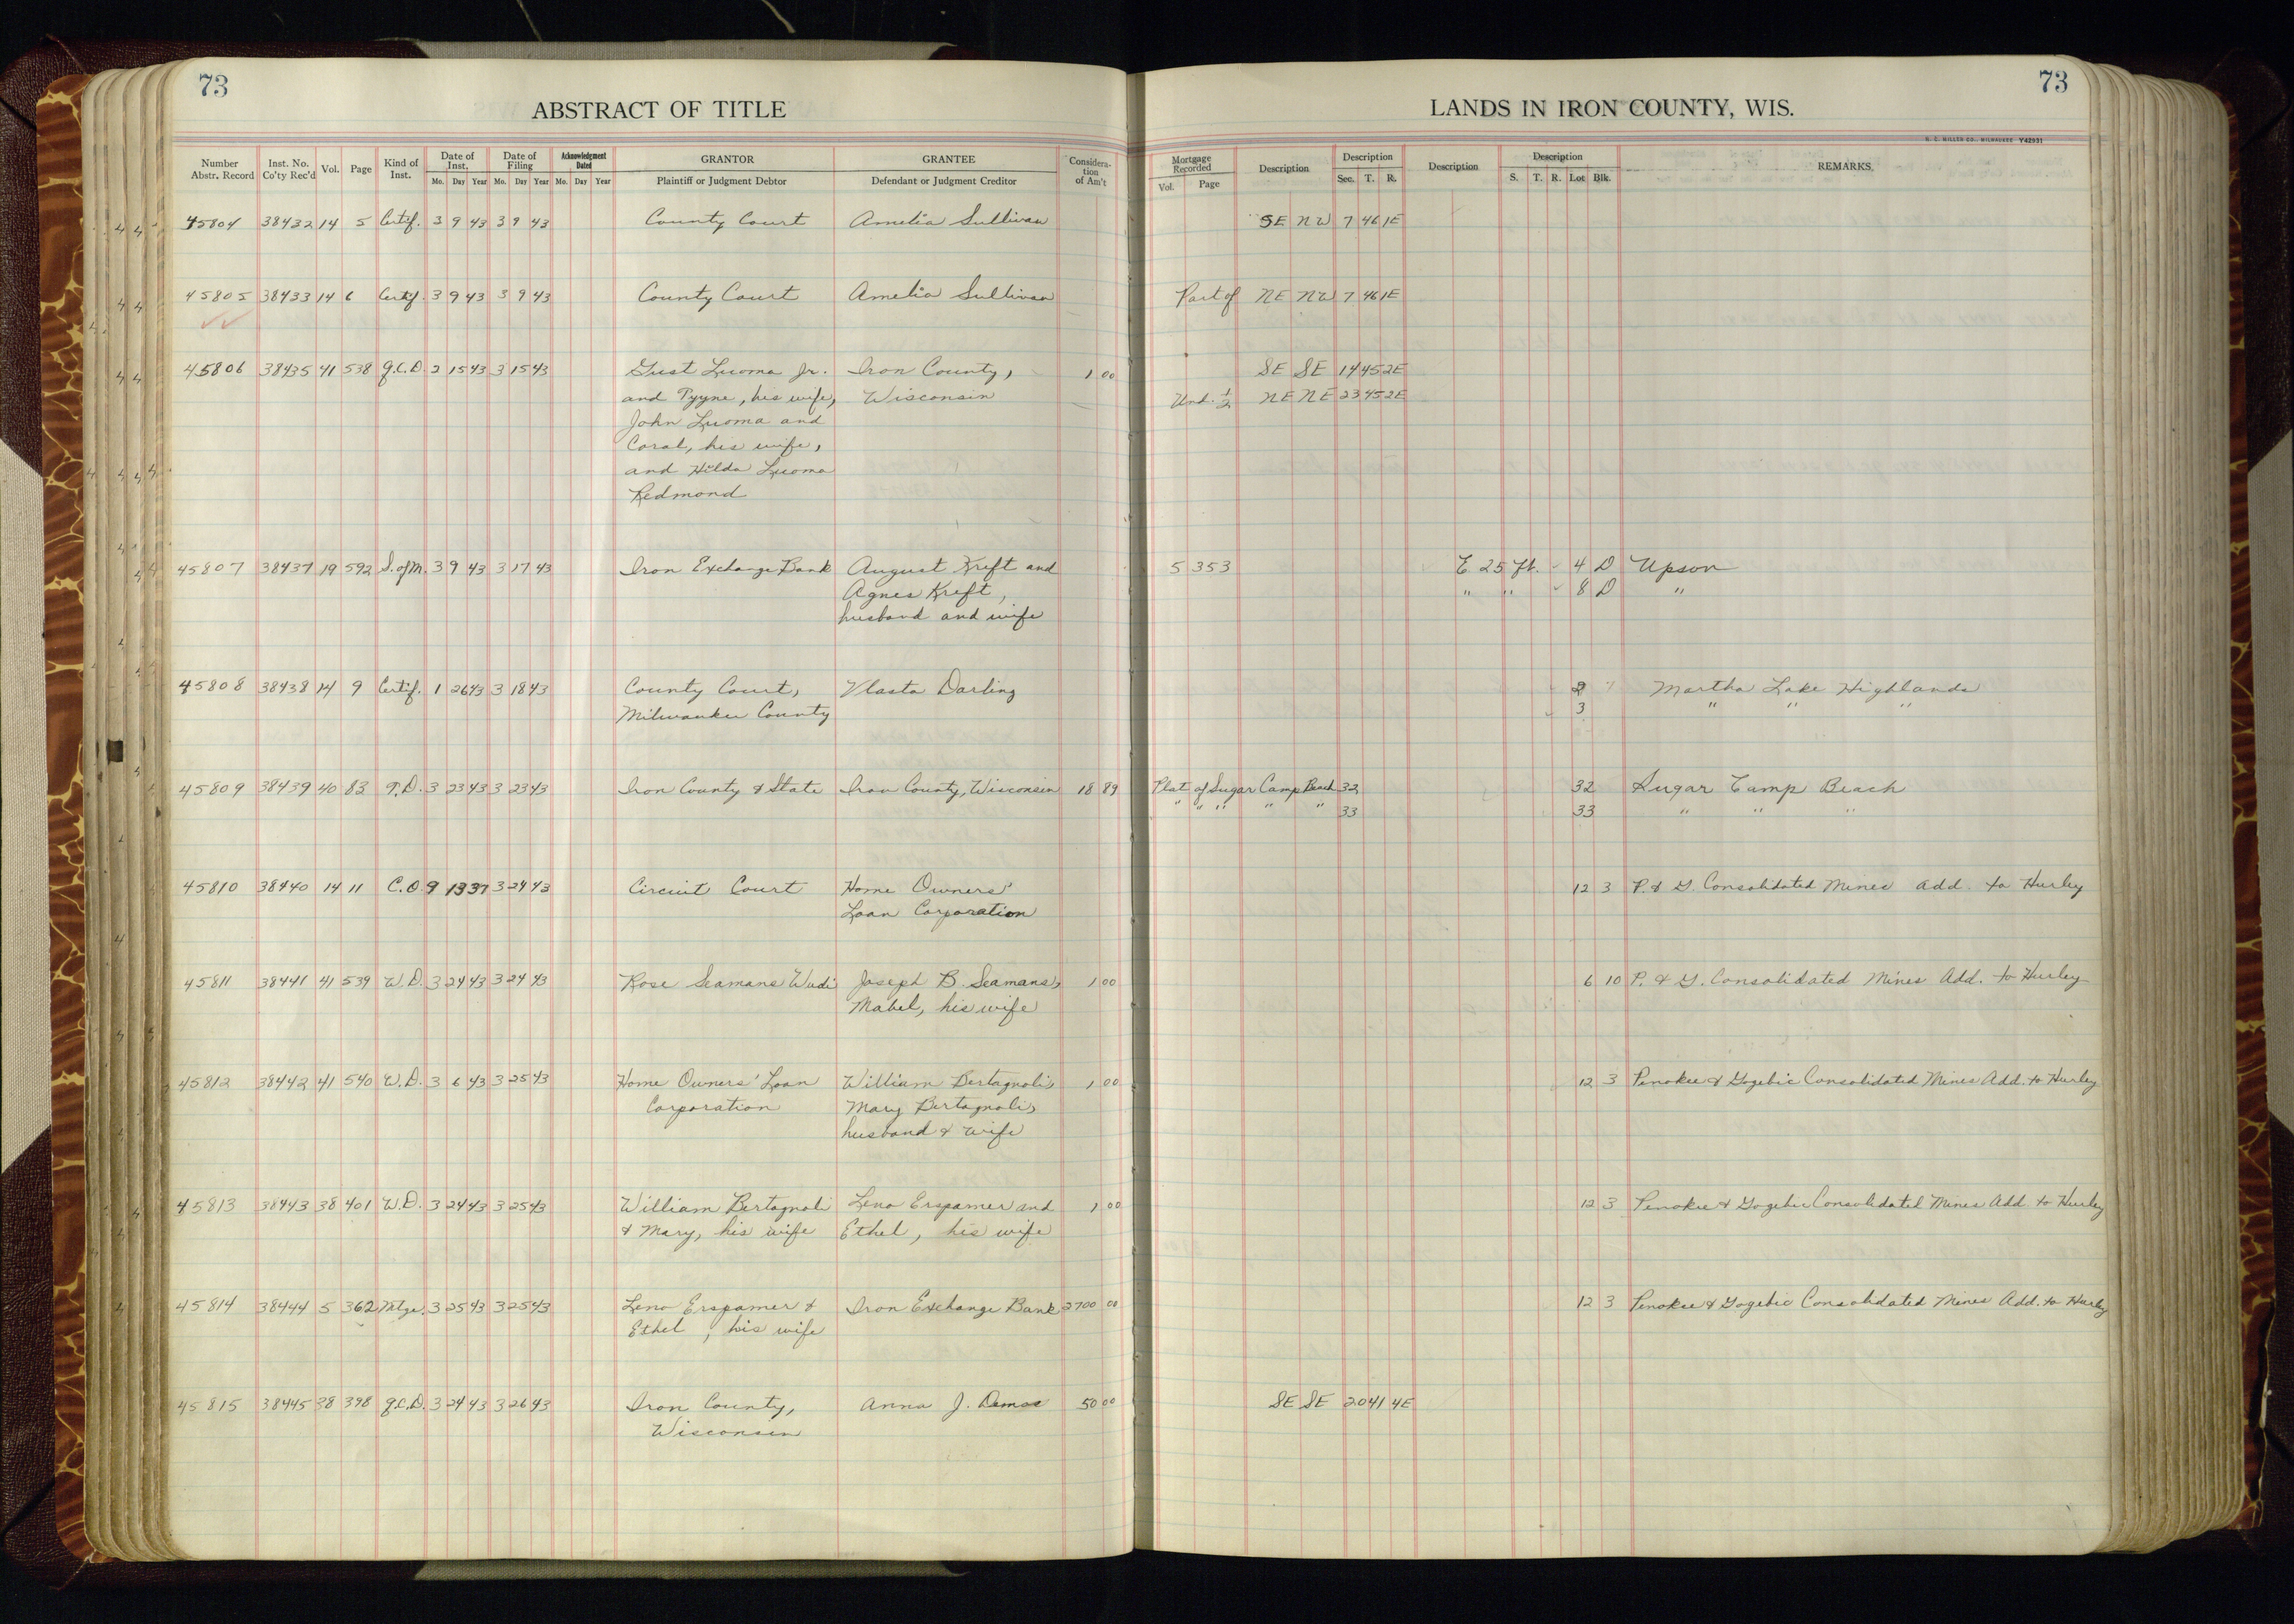 73
ABSTRACT OF TITLE
LANDS IN IRON COUNTY, WIS.
73
H. C. MILLER CO., MILWAUKEE Y42931
Number Abstr. Record Inst. No. Co'ty Rec'd Vol. Page Kind of Inst. Date of Inst. Mo. Day Year Date of Filing Mo. Day Year Acknowledgment Dated Mo. Day Year GRANTOR Plaintiff or Judgment Debtor GRANTEE Defendant or Judgment Creditor Consideration of Am't Mortgage Recorded Vol. Page Description Description Sec. T. R. Description Description S. T. R. Lot Blk. REMARKS
45804 38432 14 5 Certif. 3 9 43 3 9 43 County Court Amelia Sullivan SE NW 7 46 1E
45805 38433 14 6 Certif. 3 9 43 3 9 43 County Court Amelia Sullivan Part of NE NW 7 46 1E
45806 38435 41 538 Q.C.D. 2 15 43 3 15 43 Gust Luoma Jr. Iron County, 1 00 SE SE 14 45 2E
and Pyyne, his wife, Wisconsin Und. 1/2 NE NE 23 45 2E
John Luoma and
Coral, his wife,
and Hilda Luoma
Redmond
45807 38437 19 592 S. of M. 3 9 43 3 17 43 Iron Exchange Bank August Kreft and 5 353 E. 25 ft. 4 D Upson
Agnes Kreft, " " 8 D "
husband and wife
45808 38438 14 9 Certif. 1 26 43 3 18 43 County Court, Vlasta Darling 2 Martha Lake Highlands
Milwaukee County 3 " " "
45809 38439 40 83 T.D. 3 23 43 3 23 43 Iron County & State Iron County, Wisconsin 18 89 Plat of Sugar Camp Beach 32 32 Sugar Camp Beach
" " " " " 33 33 " " "
45810 38440 14 11 C.O. 9 13 37 3 24 43 Circuit Court Home Owners' 12 3 P. & G. Consolidated Mines Add. to Hurley
Loan Corporation
45811 38441 41 539 W.D. 3 24 43 3 24 43 Rose Seamans Wudi Joseph B. Seamans, 1 00 6 10 P. & G. Consolidated Mines Add. to Hurley
Mabel, his wife
45812 38442 41 540 W.D. 3 6 43 3 25 43 Home Owners' Loan William Bertagnoli, 1 00 12 3 Penokee & Gogebic Consolidated Mines Add. to Hurley
Corporation Mary Bertagnoli,
husband & wife
45813 38443 38 401 W.D. 3 24 43 3 25 43 William Bertagnoli Leno Erspamer and 1 00 12 3 Penokee & Gogebic Consolidated Mines Add. to Hurley
& Mary, his wife Ethel, his wife
45814 38444 5 362 Mtge. 3 25 43 3 25 43 Leno Erspamer & Iron Exchange Bank 2700 00 12 3 Penokee & Gogebic Consolidated Mines Add. to Hurley
Ethel, his wife
45815 38445 38 398 Q.C.D. 3 24 43 3 26 43 Iron County, Anna J. Demos 50 00 SE SE 20 41 4E
Wisconsin